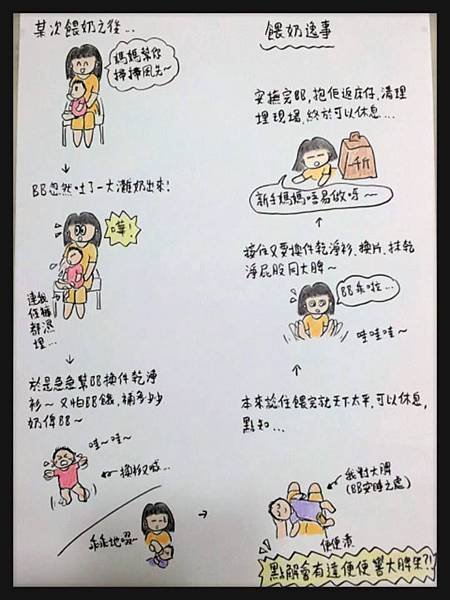 某次餵奶之後...
媽媽幫你
掃掃風先~
BB忽然吐了一大灘奶出來!
嘩!
連我
件褲
都濕
埋...
於是急急幫BB換件乾淨
衫~又怕BB餓,補多少少
奶俾BB~
哇~哇~
換衫又喊...
乖乖地啜~
餵奶逸事
安撫完BB,抱佢返床仔,清理
埋現場,終於可以休息...
一千斤
新手媽媽唔易做呀~
接住又要換件乾淨衫,換片,抹乾
淨屁股同大髀~
BB乖啦...
哇哇哇~
本來諗住餵完就天下太平,可以休息,
點知...
我對大髀
(BB安睡之處)
便便漬
點解會有遺便便響大髀架?!